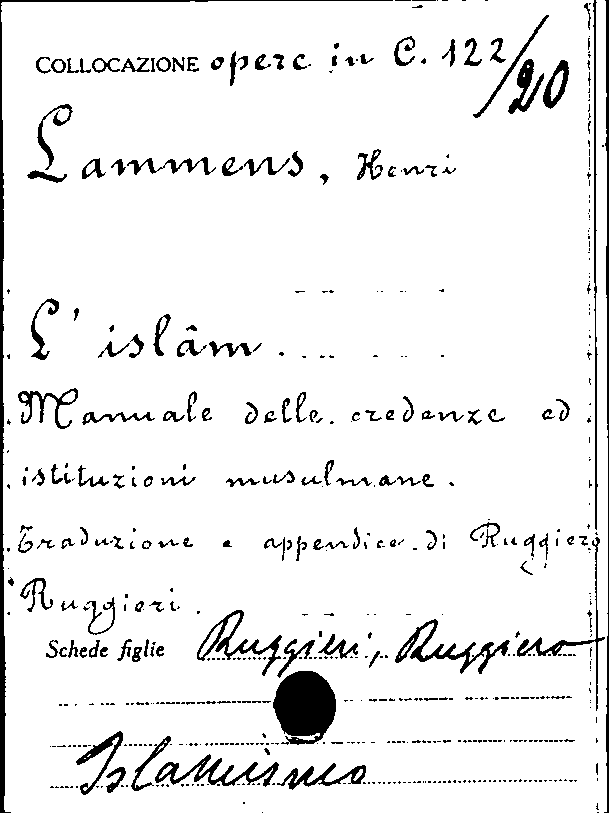 COLLOCAZIONE opere in C. 122/20
Lammens, Henri
L'islâm.
Manuale delle credenze ed
istituzioni musulmane.
Traduzione e appendice di Ruggiero
Ruggieri.
Schede figlie Ruggieri, Ruggiero
Islamismo